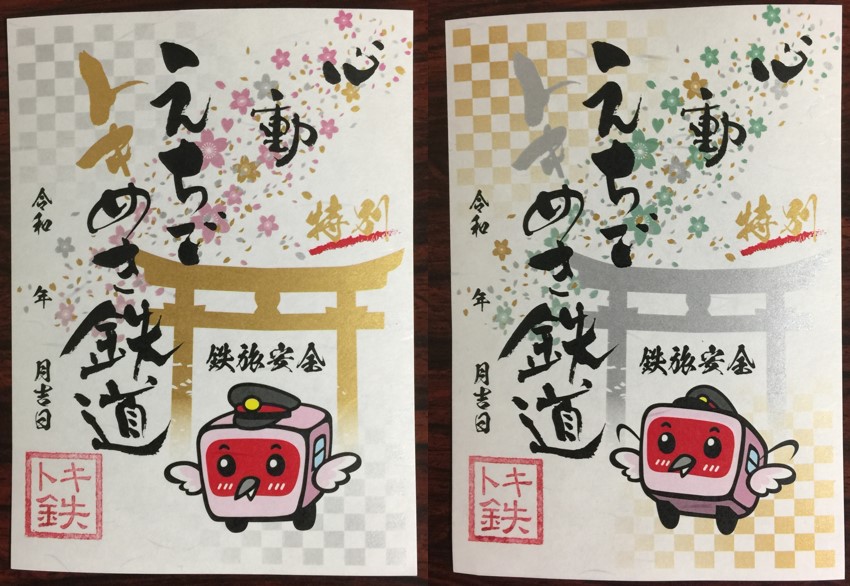 心動
えちご
トキ
めき鉄道
特別
鉄旅安全
令和 年 月吉日
トキ
鉄
心動
えちご
トキ
めき鉄道
特別
鉄旅安全
令和 年 月吉日
トキ
鉄